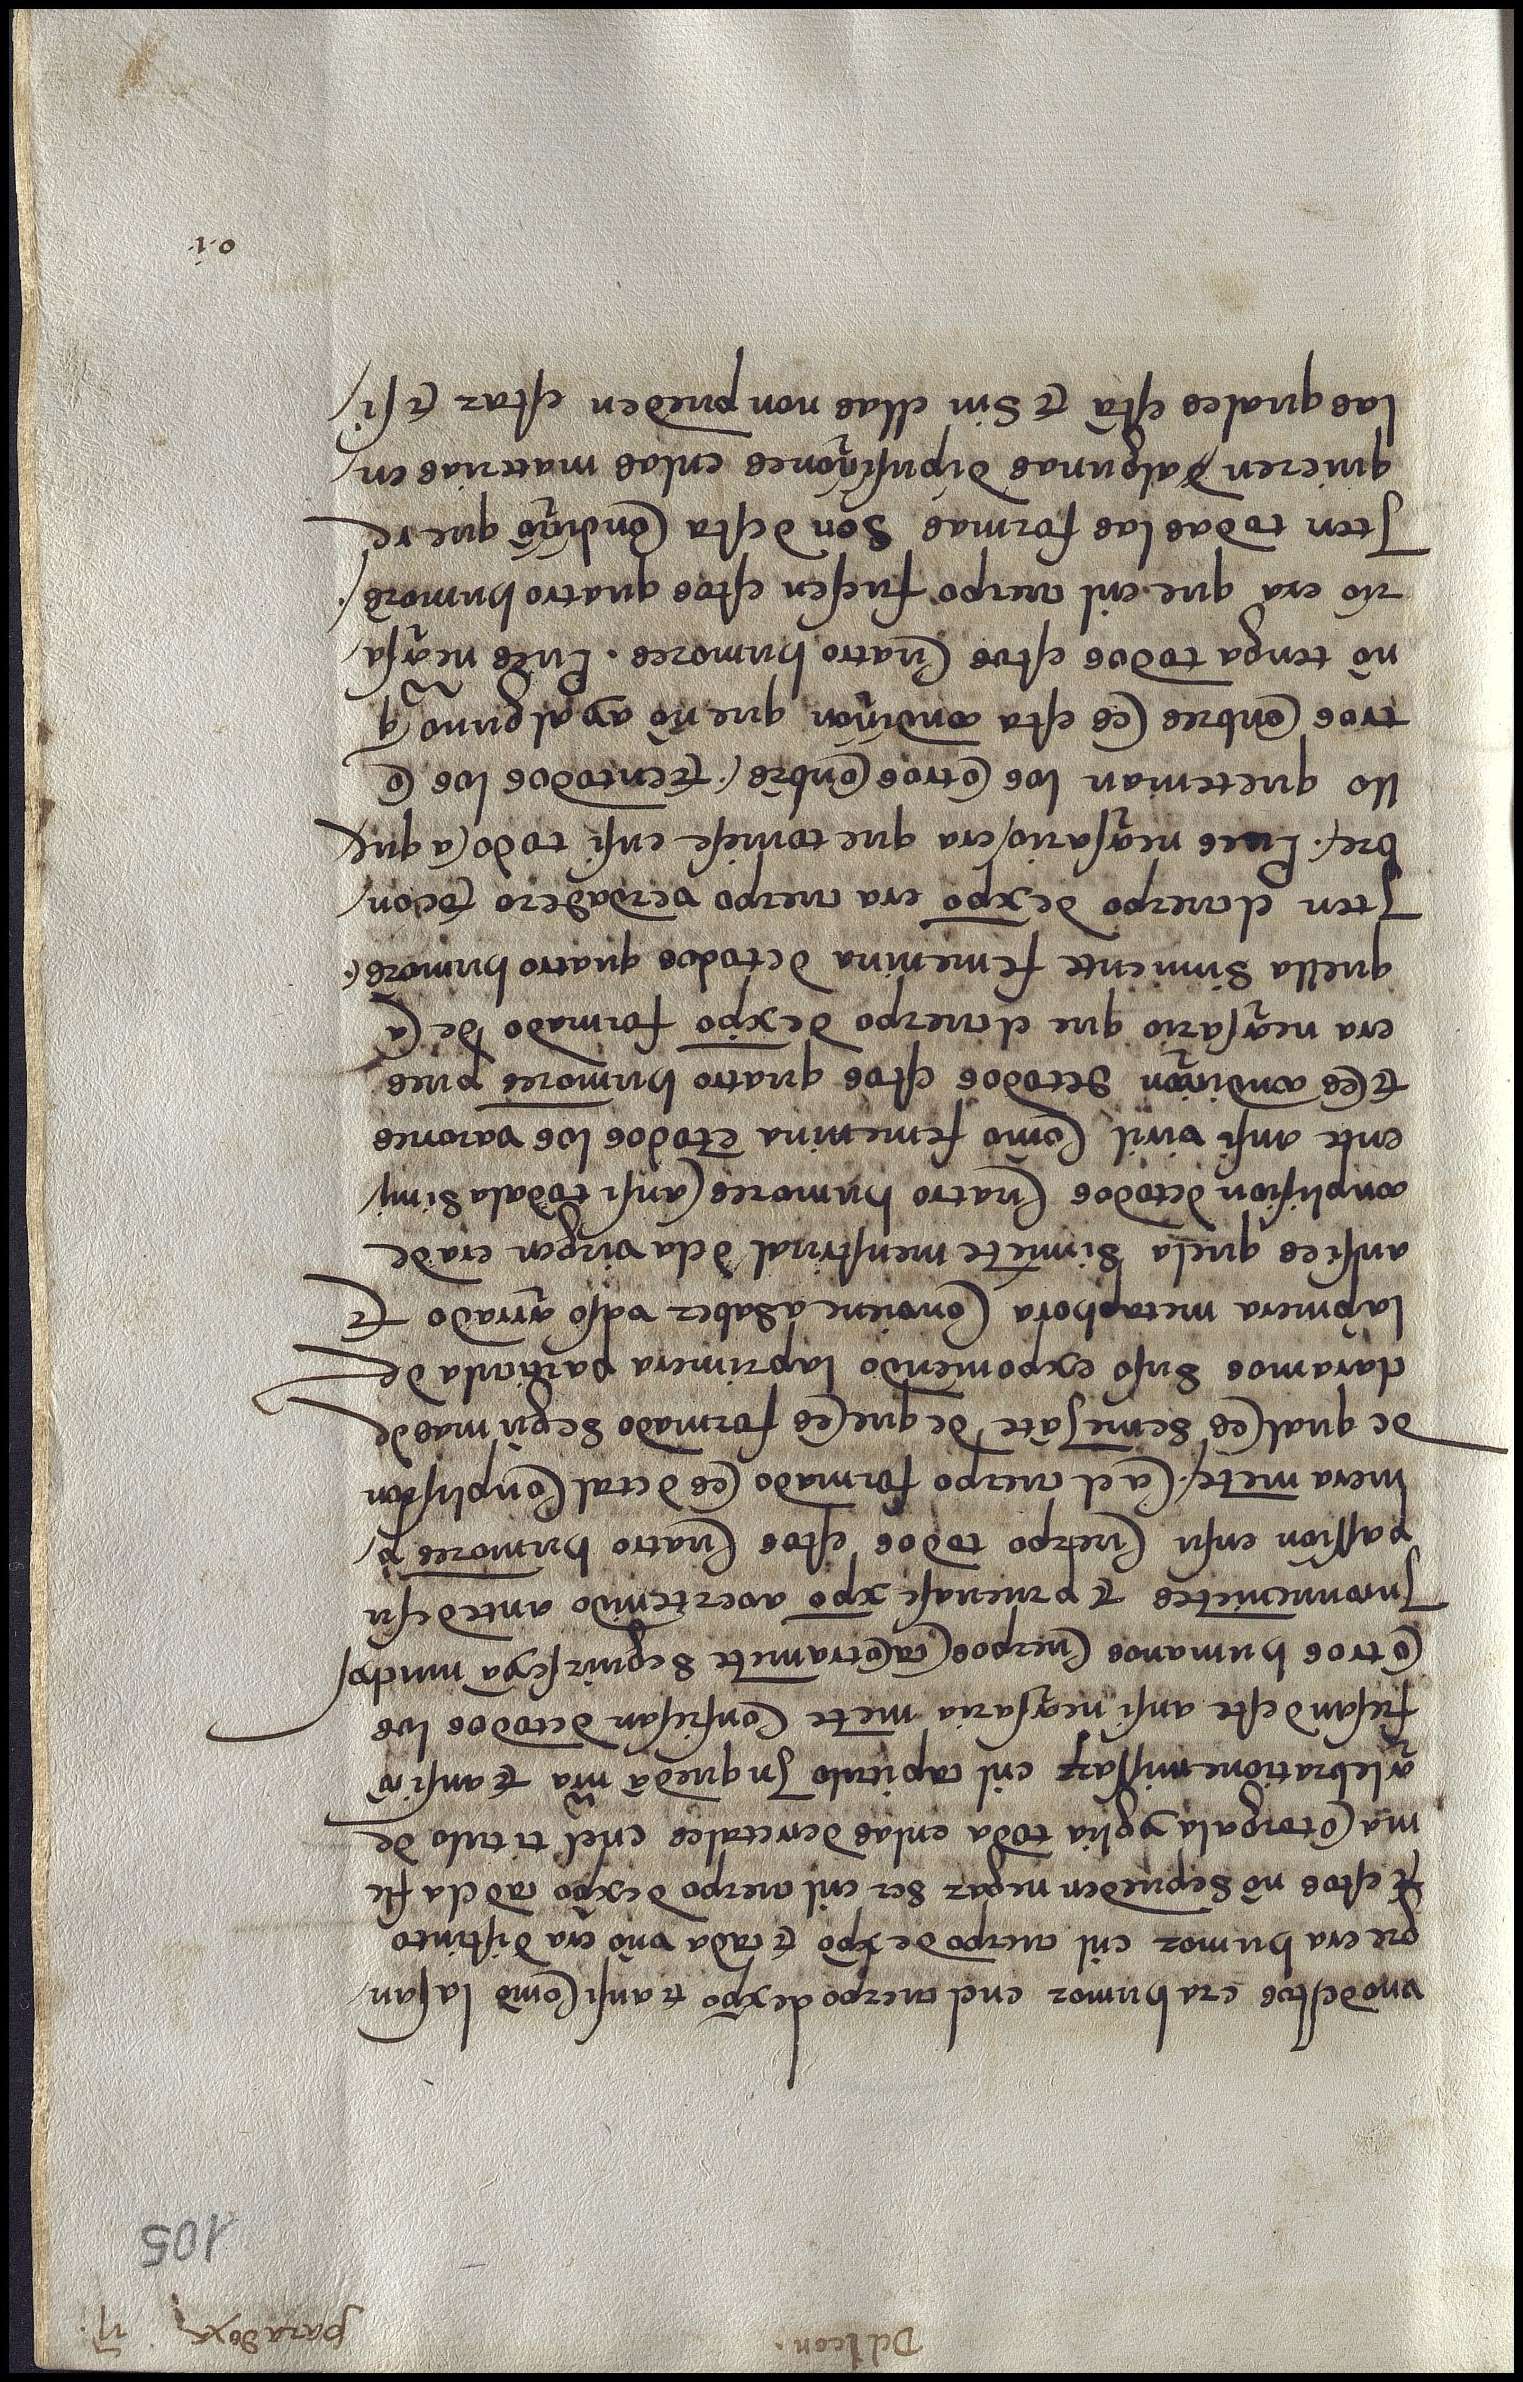 Del leon. paradoxa. ij.
105
uno destos era humor enel cuerpo de xpō ⁊ ansi como la san
gre era humor enl cuerpo de xpō ⁊ cada uno era distinto
⁊ estos nō se pueden negar ser enl cuerpo de xpō ca dela fle
ma otorga la yglīa toda enlas decretales enel titulo de
çelebratione missarꝝ enl capitulo Jn quedā nr̄a ⁊ ansi cō
fiesan deste ansi neçesaria mēte confiesan de todos los
otros humanos cuerpos ca otramēte seguirseya muchos
Jnconuenietes ⁊ prueuase xpō aver tenido ante de su
passion en su cuerpo todos estos cuatro humores p̄
mera mēte. ca el cuerpo formado es de tal conplision
de qual es semejāte de que es formado segū mas de
claramos suso exponiendo la primera particula de
la pmera metaphora conviene a saber vaso cerrado ⁊
ansi es que la simiēte menstrual dela virgen era de
conplision de todos cuatro humores ansi toda la simi
ente ansi viril como femenina ⁊ todos los varones
⁊ es condiçion de todos estos quatro humores pues
era neçesario que el cuerpo de xpō formado de a
quella simiente femenina de todos quatro humores.
Iten el cuerpo de xpō era cuerpo verdadero de on
bre. Pues neçesario era que toviese en si todo aque
llo que tenian los otros onbres. ⁊ en todos los o
tros onbres es esta condiçion que nō ay alguno q̄
nō tenga todos estos cuatro humores. Pues neçesa
rio era que enl cuerpo fuesen estos quatro humores.
Iten todas las formas son desta condiçiō que re
quieren algunas dipusiçiones enlas materias en
las quales estā ⁊ sin ellas non pueden estar ⁊ si
o.i.